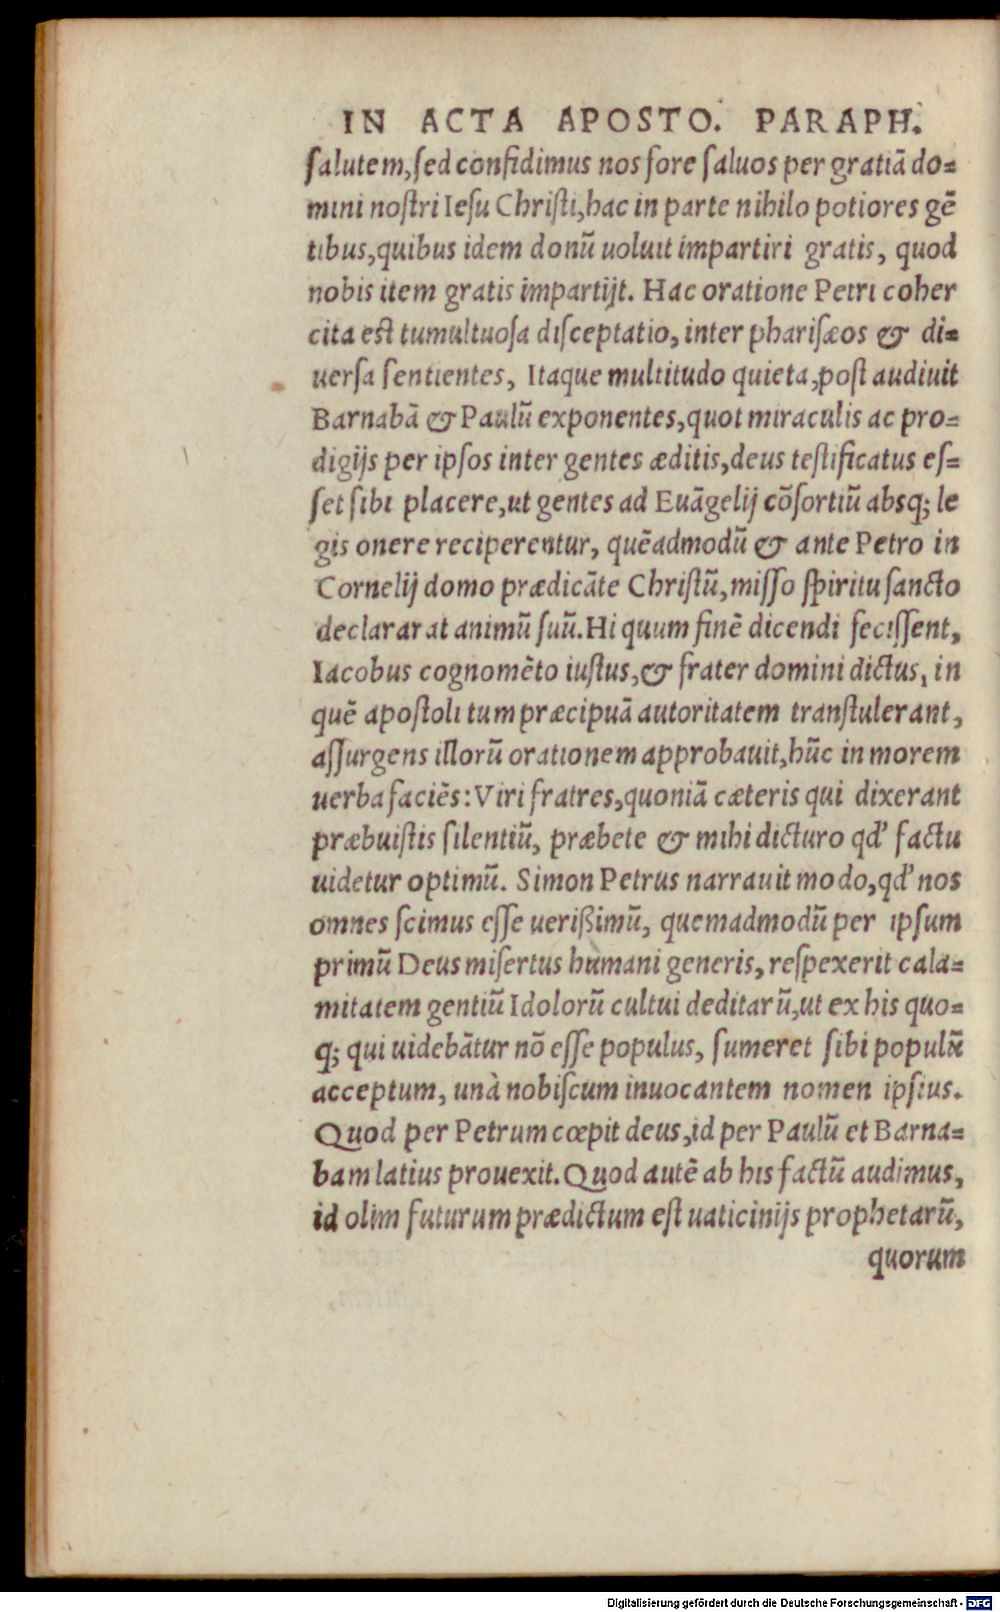 IN ACTA APOSTO. PARAPH.
salutem, sed confidimus nos fore saluos per gratiã do=
mini nostri Iesu Christi, hac in parte nihilo potiores gẽ
tibus, quibus idem donũ uoluit impartiri gratis, quod
nobis item gratis impartijt. Hac oratione Petri coher
cita est tumultuosa disceptatio, inter pharisæos & di=
uersa sentientes, Itaque multitudo quieta, post audiuit
Barnabã & Paulũ exponentes, quot miraculis ac pro=
digijs per ipsos inter gentes æditis, deus testificatus es=
set sibi placere, ut gentes ad Euãgelij cõsortiũ absq; le
gis onere reciperentur, quẽadmodũ & ante Petro in
Cornelij domo prædicãte Christũ, misso spiritu sancto
declararat animũ suũ. Hi quum finẽ dicendi fecissent,
Iacobus cognomẽto iustus, & frater domini dictus, in
quẽ apostoli tum præcipuã autoritatem transtulerant,
assurgens illorũ orationem approbauit, hũc in morem
uerba faciẽs: Viri fratres, quoniã cæteris qui dixerant
præbuistis silentiũ, præbete & mihi dicturo qd' factu
uidetur optimũ. Simon Petrus narrauit modo, qd' nos
omnes scimus esse uerißimũ, quemadmodũ per ipsum
primũ Deus misertus humani generis, respexerit cala=
mitatem gentiũ Idolorũ cultui deditarũ, ut ex his quo=
q; qui uidebãtur nõ esse populus, sumeret sibi populũ
acceptum, unà nobiscum inuocantem nomen ipsius.
Quod per Petrum cœpit deus, id per Paulũ et Barna=
bam latius prouexit. Quod autẽ ab his factũ audimus,
id olim futurum prædictum est uaticinijs prophetarũ,
quorum
Digitalisierung gefördert durch die Deutsche Forschungsgemeinschaft - DFG